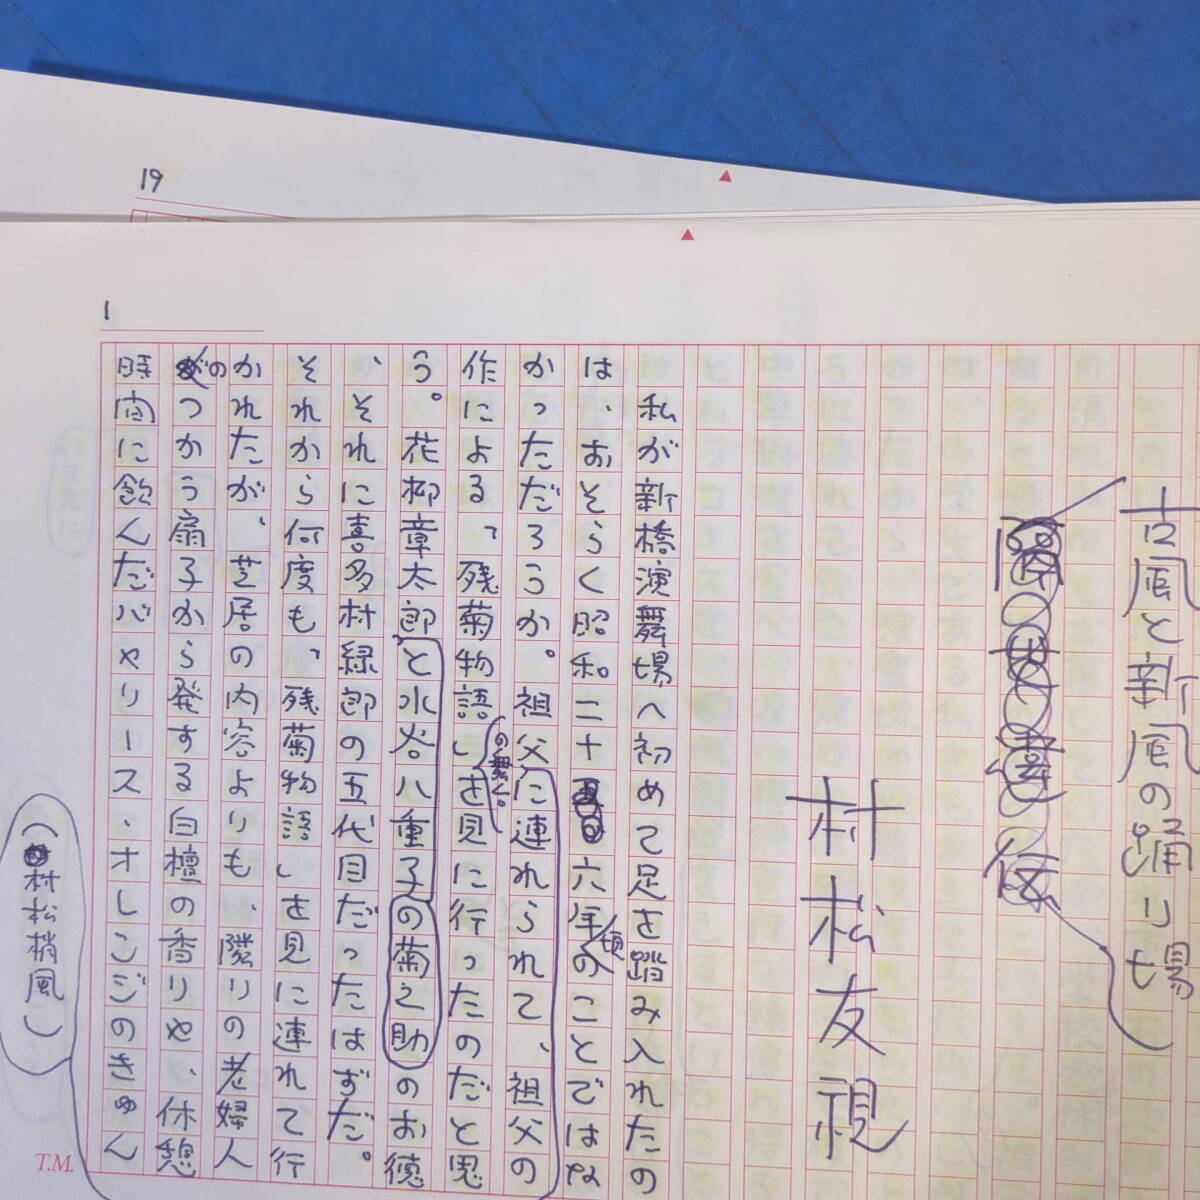 古風と新風の踊り場
村松友視
私が新橋演舞場へ初めて足を踏み入れたの
は、おそらく昭和二十六年頃のことではな
かっただろうか。祖父に連れられて、祖父の
作による『残菊物語』の舞台を見に行ったのだと思
う。花柳章太郎と水谷八重子の菊之助のお徳
、それに喜多村緑郎の五代目だったはずだ。
それから何度も『残菊物語』を見に連れて行
かれたが、芝居の内容よりも、隣りの老婦人
のつかう扇子から発する白檀の香りや、休憩
時间に飲んだバャリース・オレンジのきゅん
(村松梢風)
1
19
T.M.